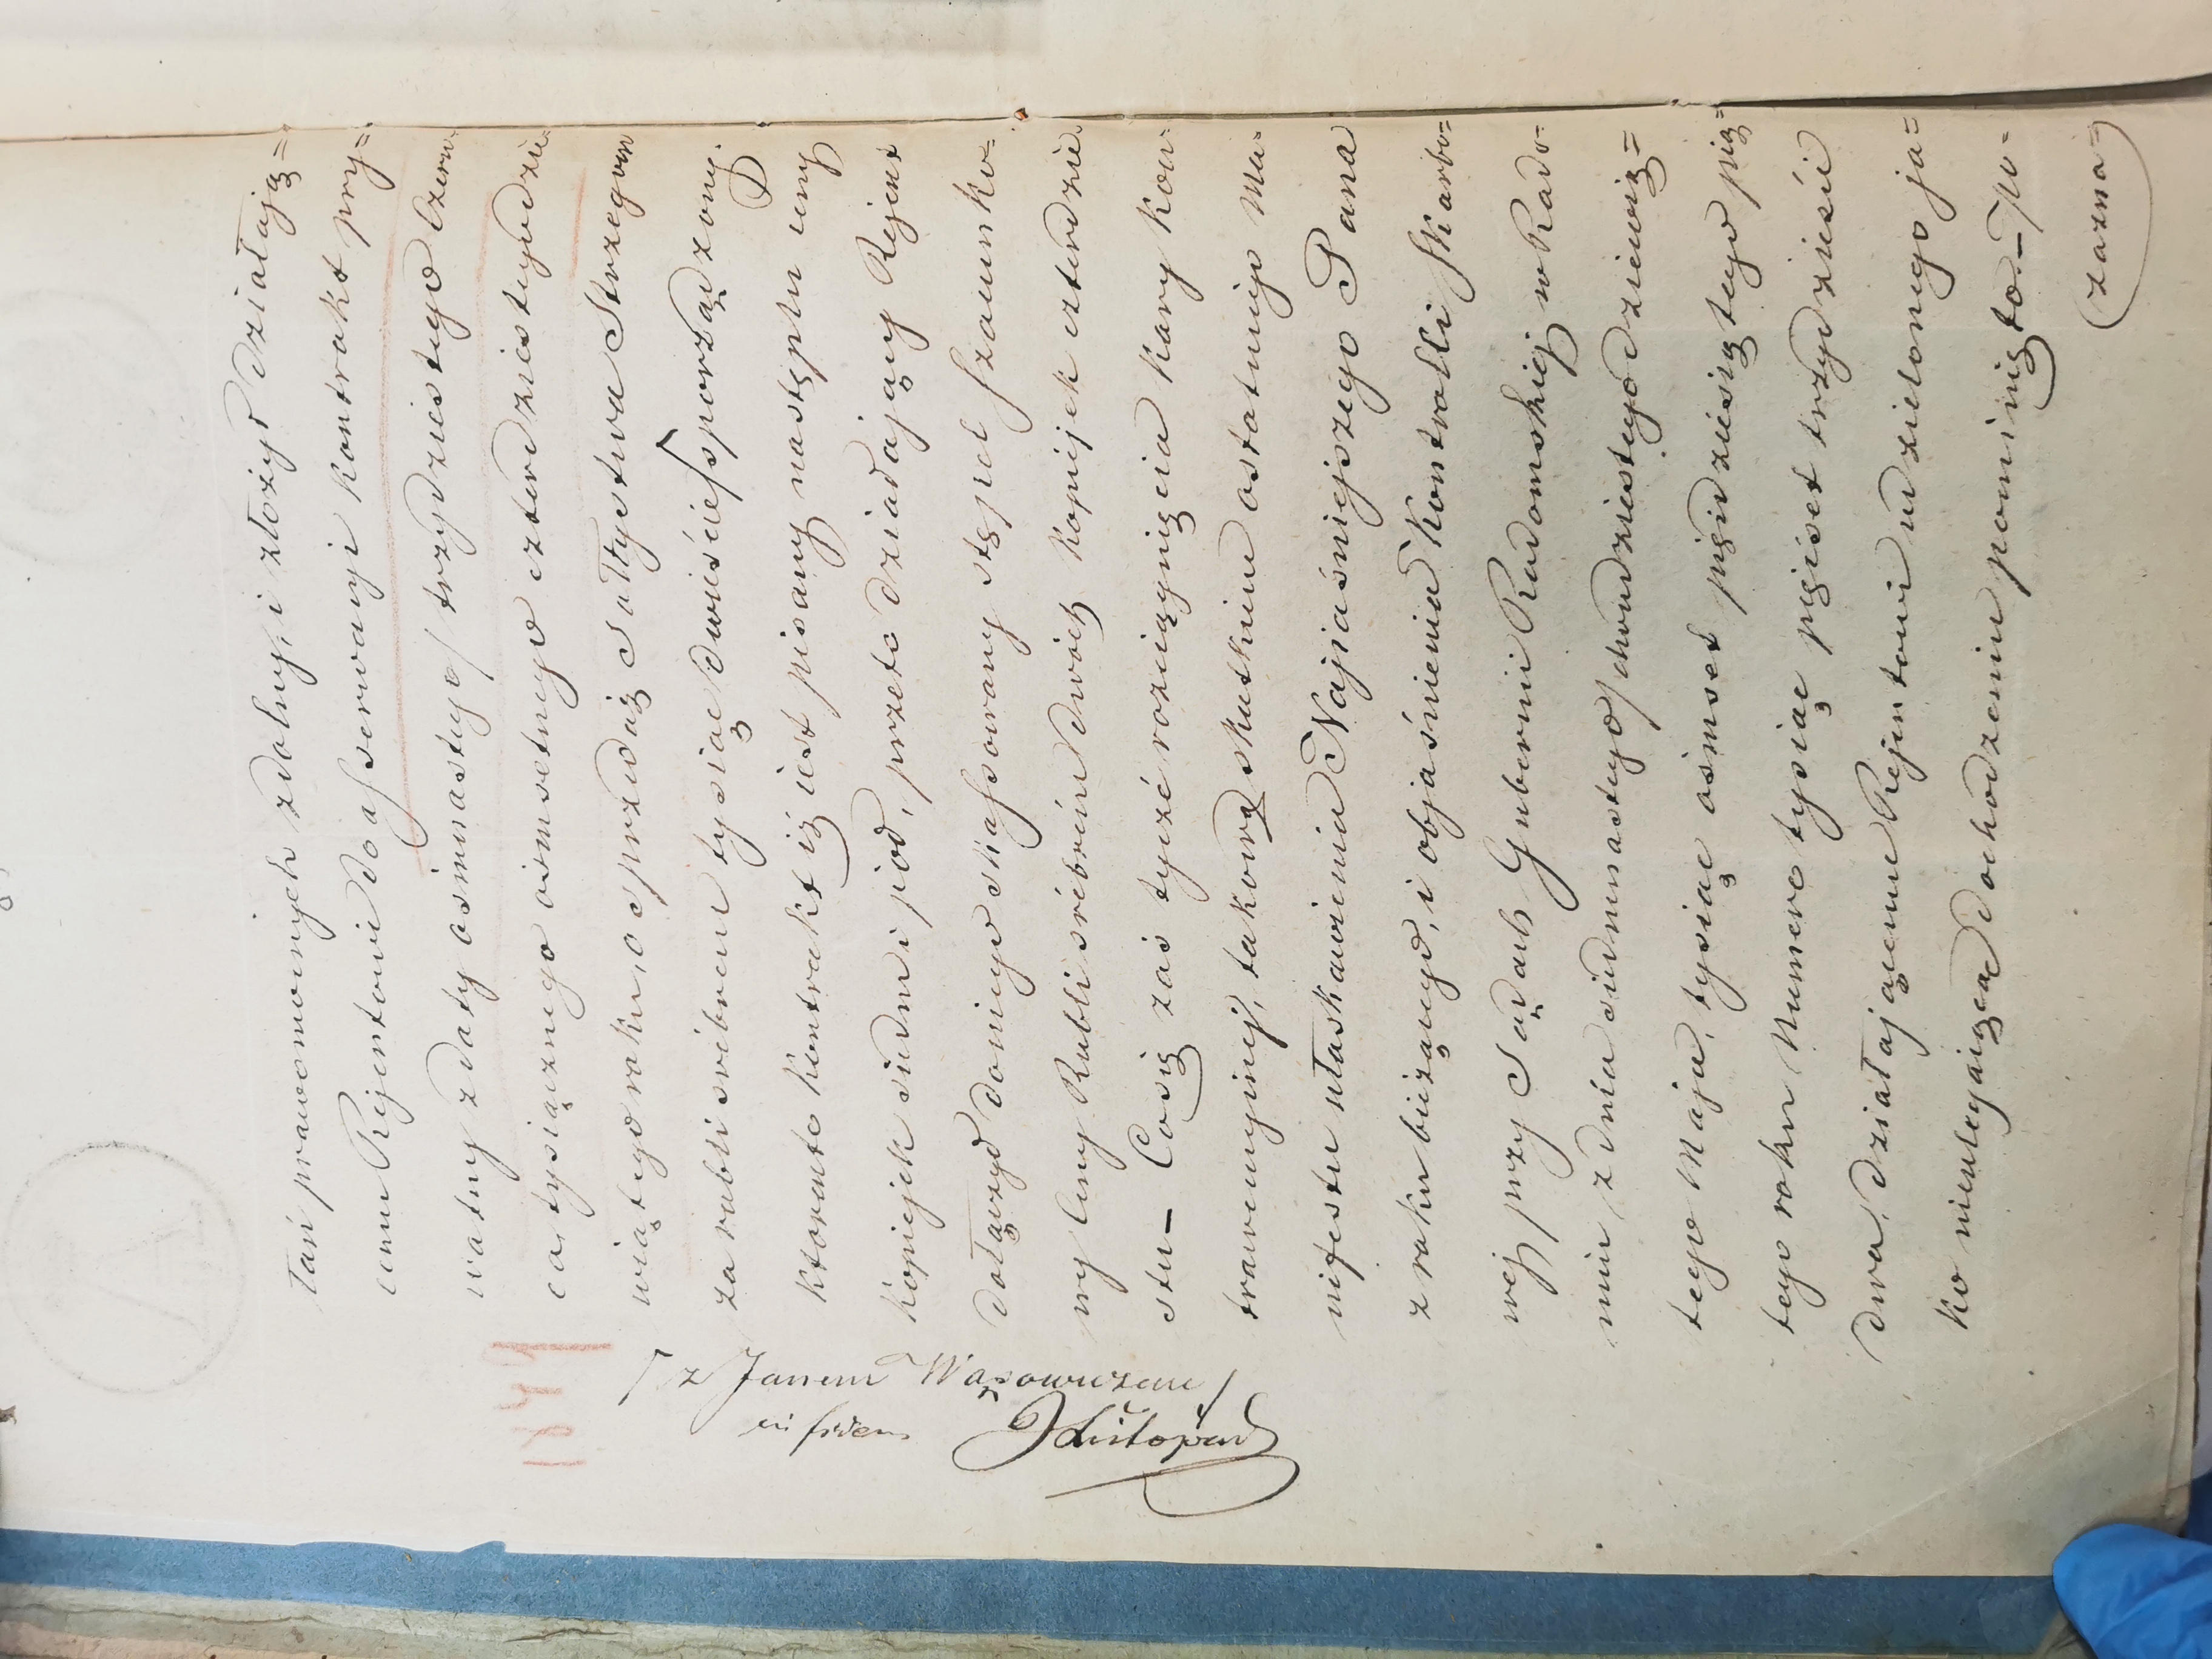 łań prawomocnych zdolny, i złożył działają=
cemu Rejentowi do asserwacyi kontrakt pry=
watny z daty osiemnastego/trzydziestego Czerw
ca, tysiącznego ośmsetnego czterdziestego dzie
wiątego roku, o sprzedaż Sołtystwa Strzegom
za rubli srebrem tysiąc dwieście/sporządzony.
ktorento kontrakt iż iest pisany na stęplu ceny
kopiejek siedm i pół, przeto działający Rejent
dołączył do niego skassowany stępel szacunko=
wy ceny Rubli srebrem dwóch kopiejek czterdzie
stu – Co się zaś tycze rozciągnięcia kary kon=
trawencyjnej, takowa skutkiem ostatniego Ma=
nifestu ułaskawienia Najjaśniejszego Pana
z roku bieżącego, i objaśnienia Kontrolli Skarbo=
wej przy Sądach Gubernii Radomskiej w Rado=
miu z dnia siedmnastego/dwudziestego dziewią=
tego Maja, tysiąc ośmset pięćdziesiątego pią=
tego roku Numero tysiąc pięćset trzydzieści
dwa, działającemu Rejentowi udzielonego ja=
ko nieulegaiąca dochodzeniu pominięta – po=
(zazna=)
/z Janem Wąsowiczem/
in fidem
J Listopad
1849